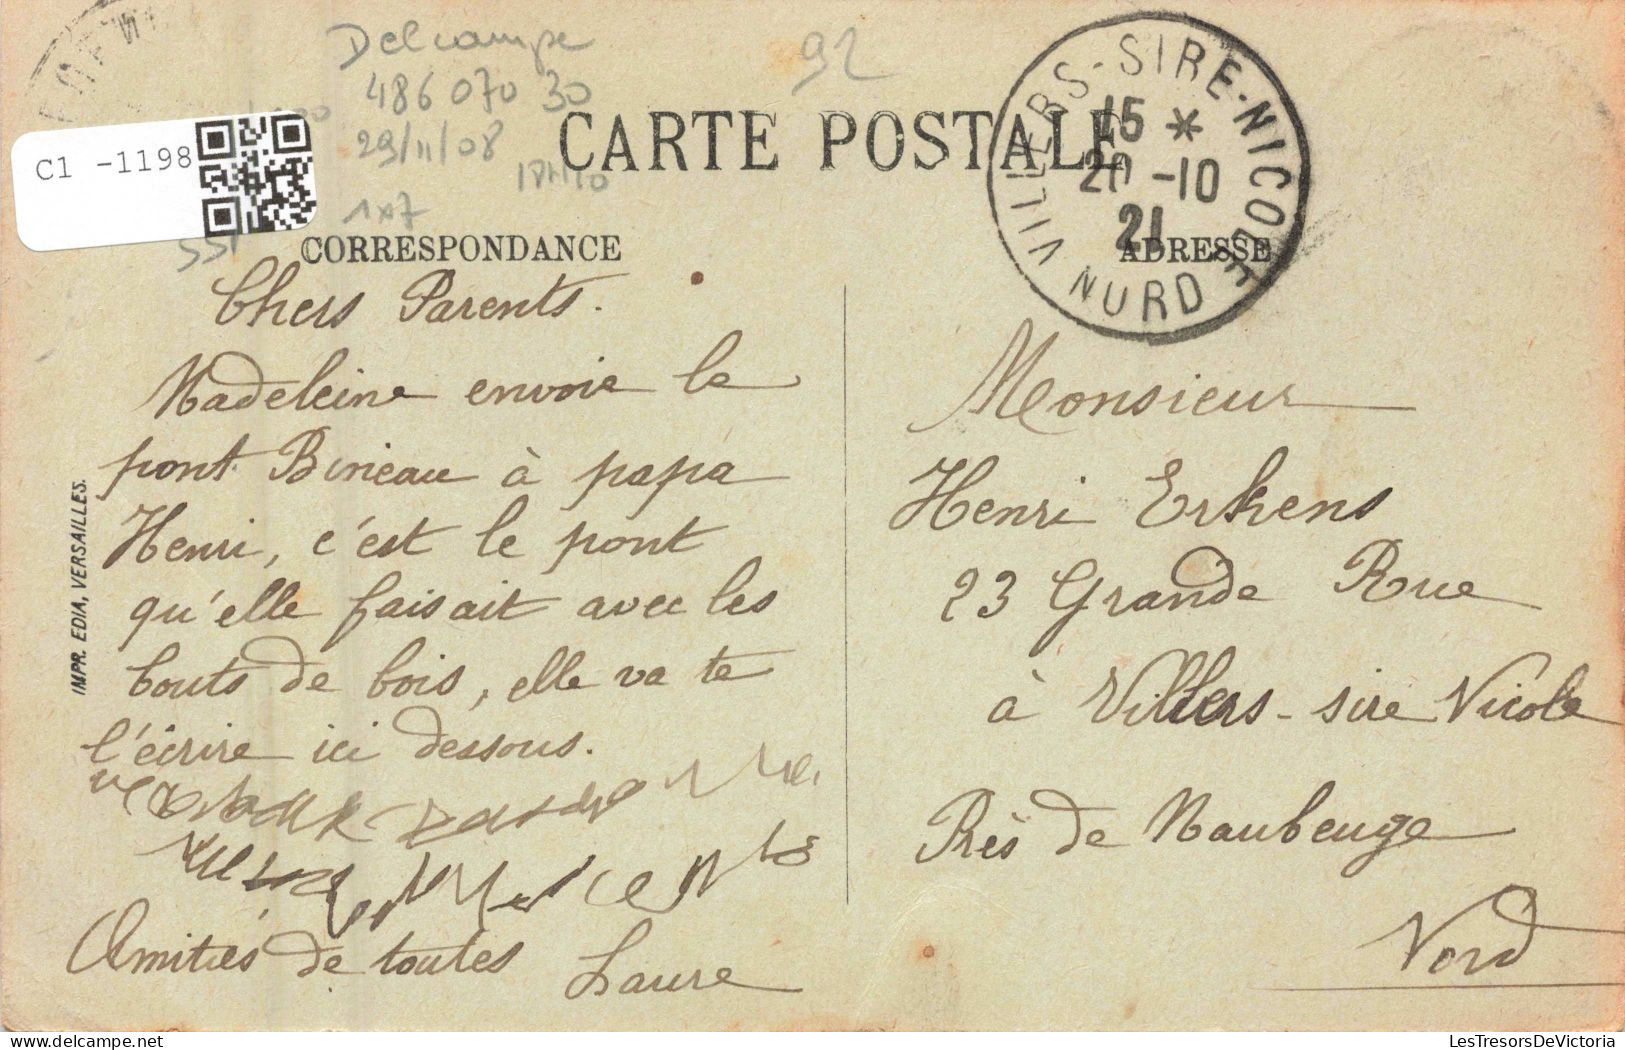 Delcampe
486 070 30
29/11/08
18h10
1x7
92
C1 -1198
CARTE POSTALE
VILLERS-SIRE-NICOLE
15 *
20 -10
21
NORD
CORRESPONDANCE
ADRESSE
IMPR. EDIA, VERSAILLES.
Chers Parents.
Madeleine envoie le
pont Bineau à papa
Henri, c'est le pont
qu'elle faisait avec les
bouts de bois, elle va te
l'écrire ici dessous.
Amitiés de toutes
Laure
Monsieur
Henri Erkens
23 Grande Rue
à Villers-sire Nicole
Près de Maubeuge
Nord
LesTresorsDeVictoria